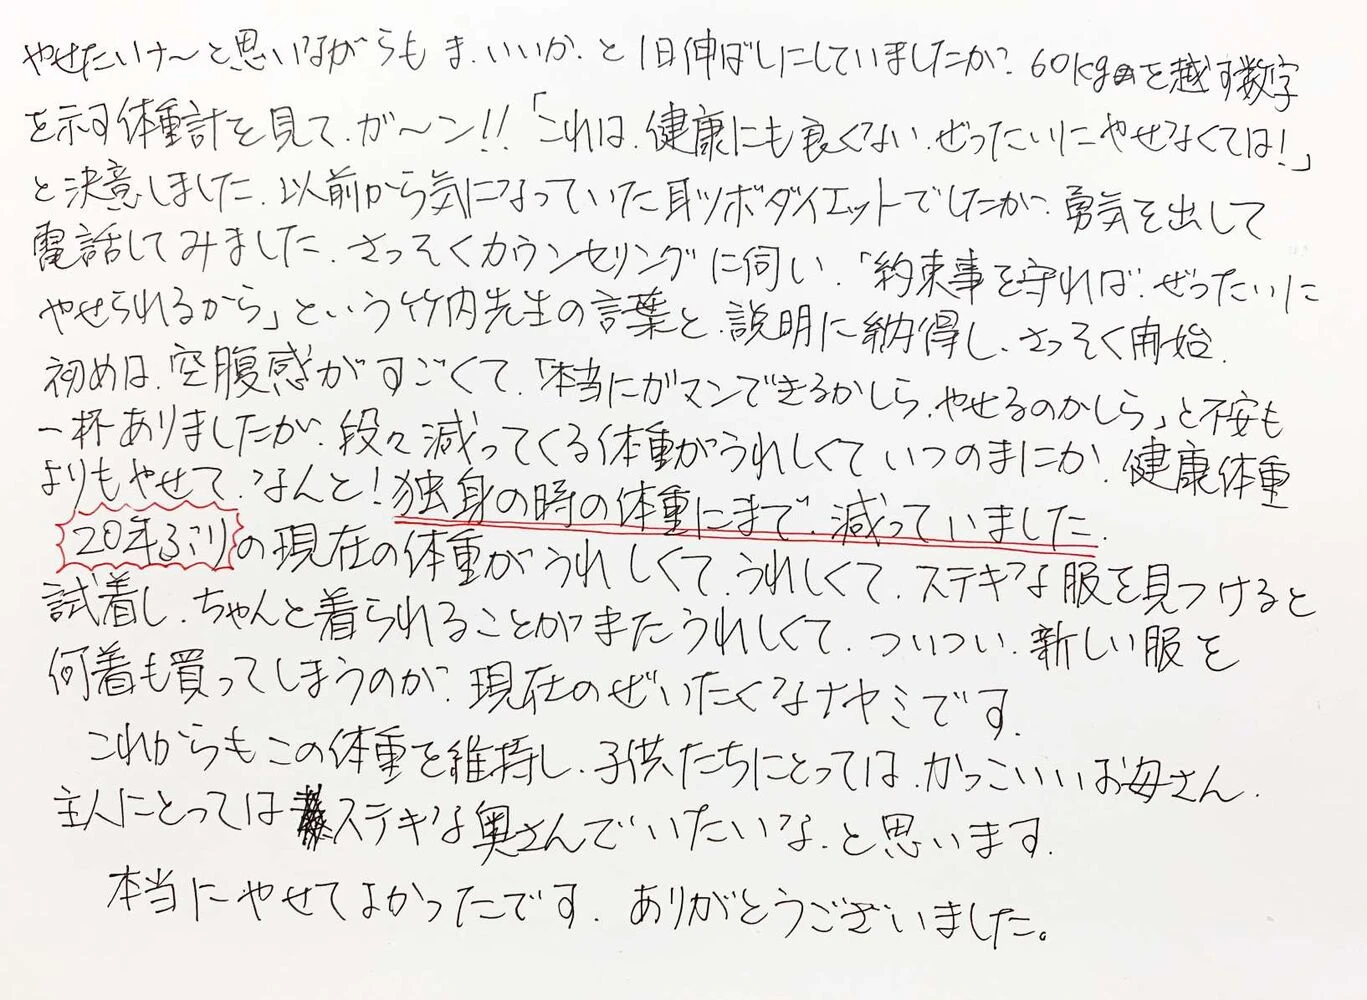 やせたいナ〜と思いながらも ま、いいか、と1日伸ばしにしていましたが、60kgを越す数字
を示す体重計を見て、ガ〜ン!!「これは、健康にも良くない、ぜったいにやせなくては!」
と決意しました、以前から気になっていた耳ツボダイエットでしたが、勇気を出して
電話してみました、さっそくカウンセリングに伺い、「約束事を守れば、ぜったいに
やせられるから」という竹内先生の言葉と、説明に納得し、さっそく開始、
初めは、空腹感がすごくて、「本当にガマンできるかしら、やせるのかしら」と不安も
一杯ありましたが、段々減ってくる体重がうれしくていつのまにか、健康体重
よりもやせて、なんと!独身の時の体重にまで、減っていました、
20年ぶりの現在の体重がうれしくて、うれしくて、ステキな服を見つけると
試着し、ちゃんと着られることがまたうれしくて、ついつい、新しい服を
何着も買ってしまうのが、現在のぜいたくなナヤミです、
これからもこの体重を維持し、子供たちにとっては、かっこいいお母さん、
主人にとってはステキな奥さんでいたいな、と思います、
本当にやせてよかったです、ありがとうございました。